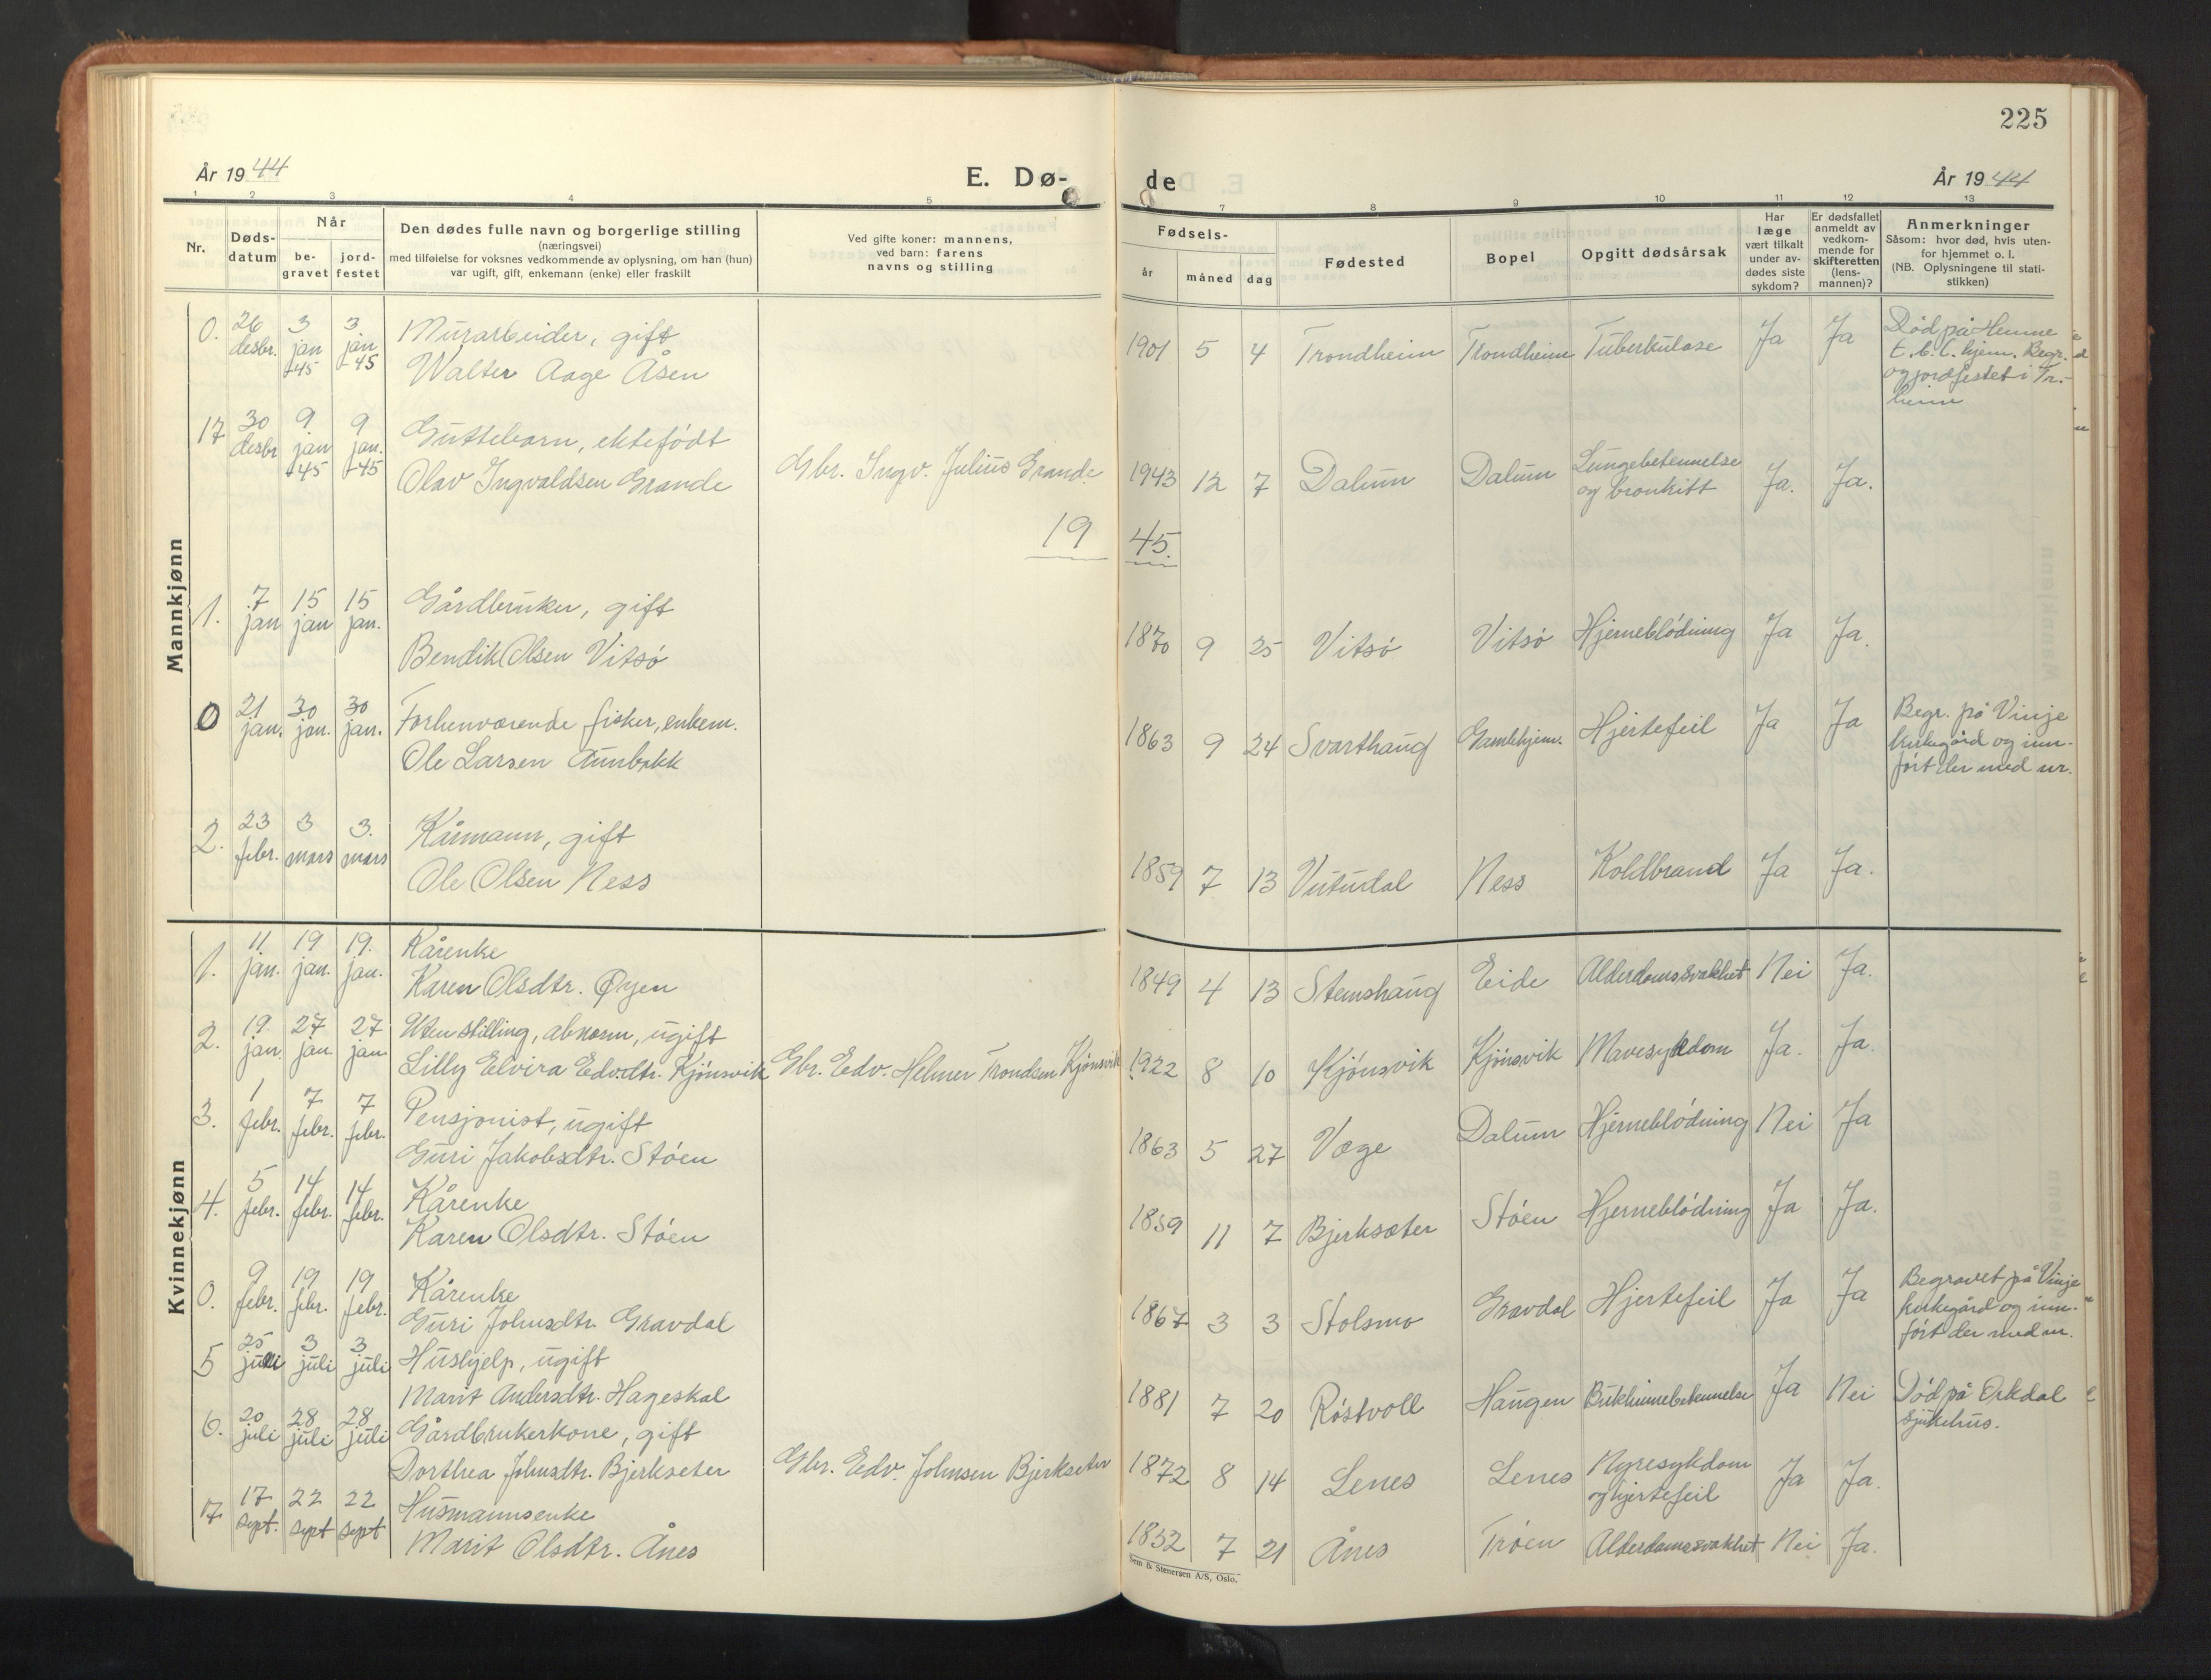 225
År 1944
E. Dø-
de
År 1944
1 2 3 4 5 7 8 9 10 11 12 13
Nr.
Døds-
datum
Når
be-
gravet
jord-
festet
Den dødes fulle navn og borgerlige stilling
(næringsvei)
med tilføielse for voksnes vedkommende av oplysning, om han (hun)
var ugift, gift, enkemann (enke) eller fraskilt
Ved gifte koner: mannens,
ved barn: farens
navns og stilling
Fødsels-
år
måned
dag
Fødested
Bopel
Opgitt dødsårsak
Har
læge
vært tilkalt
under av-
dødes siste
sykdom?
Er dødsfallet
anmeldt av
vedkom-
mende for
skifteretten
(lens-
mannen)?
Anmerkninger
Såsom: hvor død, hvis uten-
for hjemmet o. l.
(NB. Oplysningene til stati-
stikken)
Mannkjønn
0. 26 desbr. 3 jan -45 3 jan -45 Murarbeider, gift
Walter Aage Åsen
1901 5 4 Trondheim Trondheim Tuberkulose Ja Ja
Død på Hemne
t.b.c. hjem. Begr.
og jordfestet i Tr.-
heim
17 30 desbr 9 jan -45 9 jan. -45 Guttebarn, ektefødt
Olav Ingvaldsen Grande
Gbr. Ingv. Julius Grande
1943 12 7 Dalum Dalum Lungebetennelse
og bronkitt Ja. Ja.
19 45.
1. 7 jan 15 jan 15 jan. Gårdbruker, gift
Bendik Olsen Vitsø
1870 9 25 Vitsø Vitsø Hjerneblødning Ja Ja.
0 21 jan. 30 jan. 30 jan. Forhenværende fisker, enkem.
Ole Larsen Aunbakk
1863 9 24 Svarthaug Gamlehjem. Hjertefeil Ja Ja
Begr. på Vinje
kirkegård og inn-
ført der med nr.
2. 23 febr. 3 mars 3. mars Kårmann, gift
Ole Olsen Ness
1859 7 13 Vutudal Ness Koldbrand Ja Ja.
Kvinnekjønn
1. 11 jan. 19 jan. 19. jan. Kårenke
Karen Olsdtr. Øyen
1849 4 13 Stemshaug Eide Alderdomssvakhet Nei Ja.
2. 19. jan. 27 jan. 27 jan Uten stilling, abnorm, ugift
Lilly Elvira Edvdtr. Kjønsvik
Gbr. Edv. Helmer Trondsen Kjønsvik
1922 8 10 Kjønsvik Kjønsvik Mavesykdom Ja. Ja.
3. 1 febr. 7 febr. 7 febr. Pensjonist, ugift
Guri Jakobsdtr. Støen
1863 5 27 Væge Dalum Hjerneblødning Nei Ja
4. 5 febr. 14 febr. 14 febr. Kårenke
Karen Olsdtr. Støen
1859 11 7 Bjerksæter Støen Hjerneblødning Ja Ja.
0. 9 febr. 19 febr. 19 febr. Kårenke
Guri Johnsdtr. Gravdal
1867 3 3 Stolsmo Gravdal Hjertefeil Ja Ja
Begravet på Vinje
kirkegård og inn-
ført der med nr.
5 25 juni 3 juli 3 juli Hushjelp, ugift
Marit Andersdtr. Hageskal
1881 7 20 Røstvoll Haugen Bukhinnebetennelse Ja Nei
Død på Orkdal
sjukehus.
6. 20 juli 28 juli 28 juli Gårdbrukerkone, gift
Dorthea Johnsdtr. Bjerkseter
Gbr. Edv. Johnsen Bjerkseter
1872 8 14 Lenes Lenes Nyresykdom
og hjertefeil Ja Ja.
7. 17 sept. 22 sept 22 sept Husmannsenke
Marit Olsdtr. Ånes
1852 7 21 Ånes Trøen Alderdomssvakhet Nei Ja.
Sem & Stenersen A/S, Oslo.